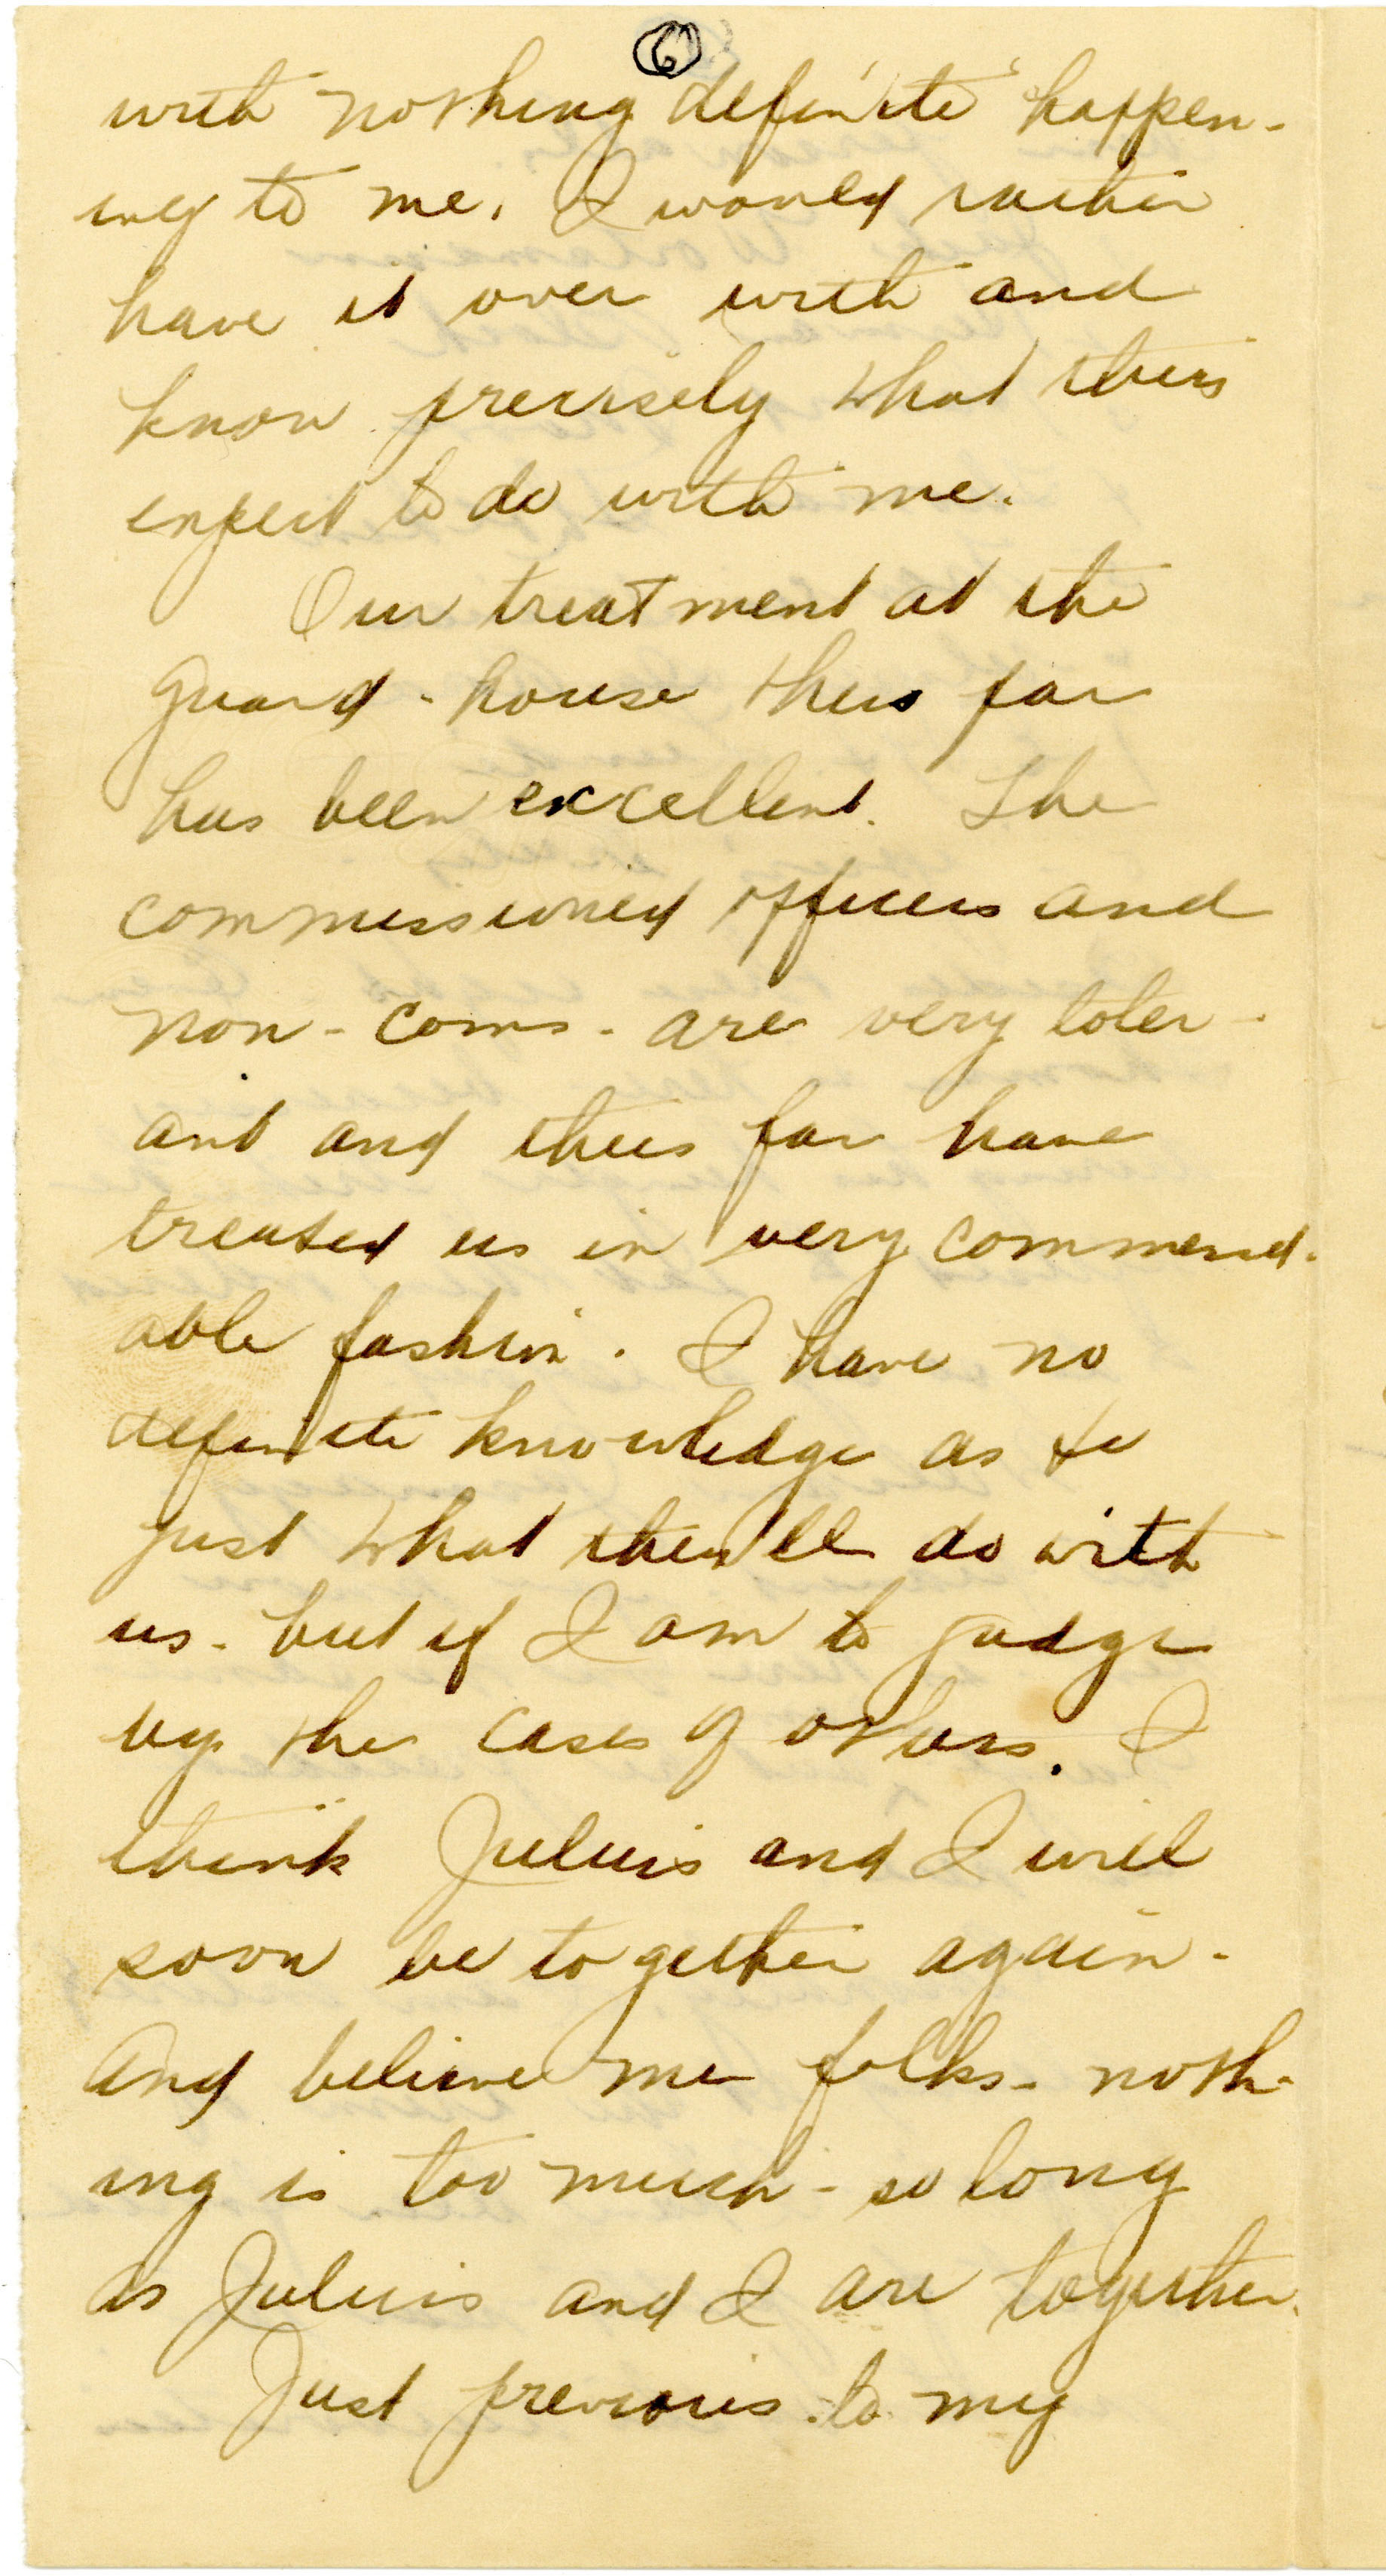 6
with nothing definite happen-
ing to me. I would rather
have it over with and
know precisely what they
expect to do with me.
Our treatment at the
guard-house thus far
has been excellent. The
commissioned officers and
non-coms- are very toler-
ant and thus far have
treated us in very commend-
able fashion. I have no
definite knowledge as to
just what they'll do with
us- but if I am to judge
by the cases of others. I
think Julius and I will
soon be together again-
And believe me folks- noth-
ing is too much- so long
as Julius and I are together.
Just previous to my